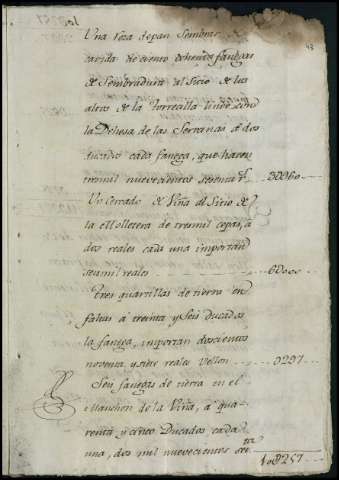 Una roza de pan Sembrar
de ciento ochenta fanegas
de Sembradura al Sitio de los
altos de la Torrecilla linde
la Dehesa de las Serranas a dos
ducados cada fanega, que hacen
tresmil nuevecientos sesenta rs 3U960
Un Cercado de Viña al Sitio de
la Molletera de tresmil cepas, a
dos reales cada una importan
seis mil reales 6U000
Tres quartillas de tierra en
faltas a treinta y seis Ducados
la faniga, importan doscientos
noventa y siete reales vellon U297
Seis fanegas de tierra en el
Manchon de la Viña, a qua-
renta y cinco Ducados cada
una, dos mil nuevecientos
10U257